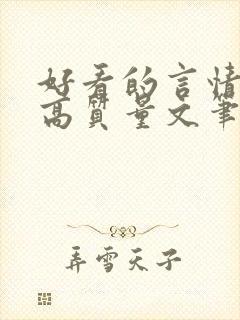 好看的言情
高质量文笔
弄雪天子